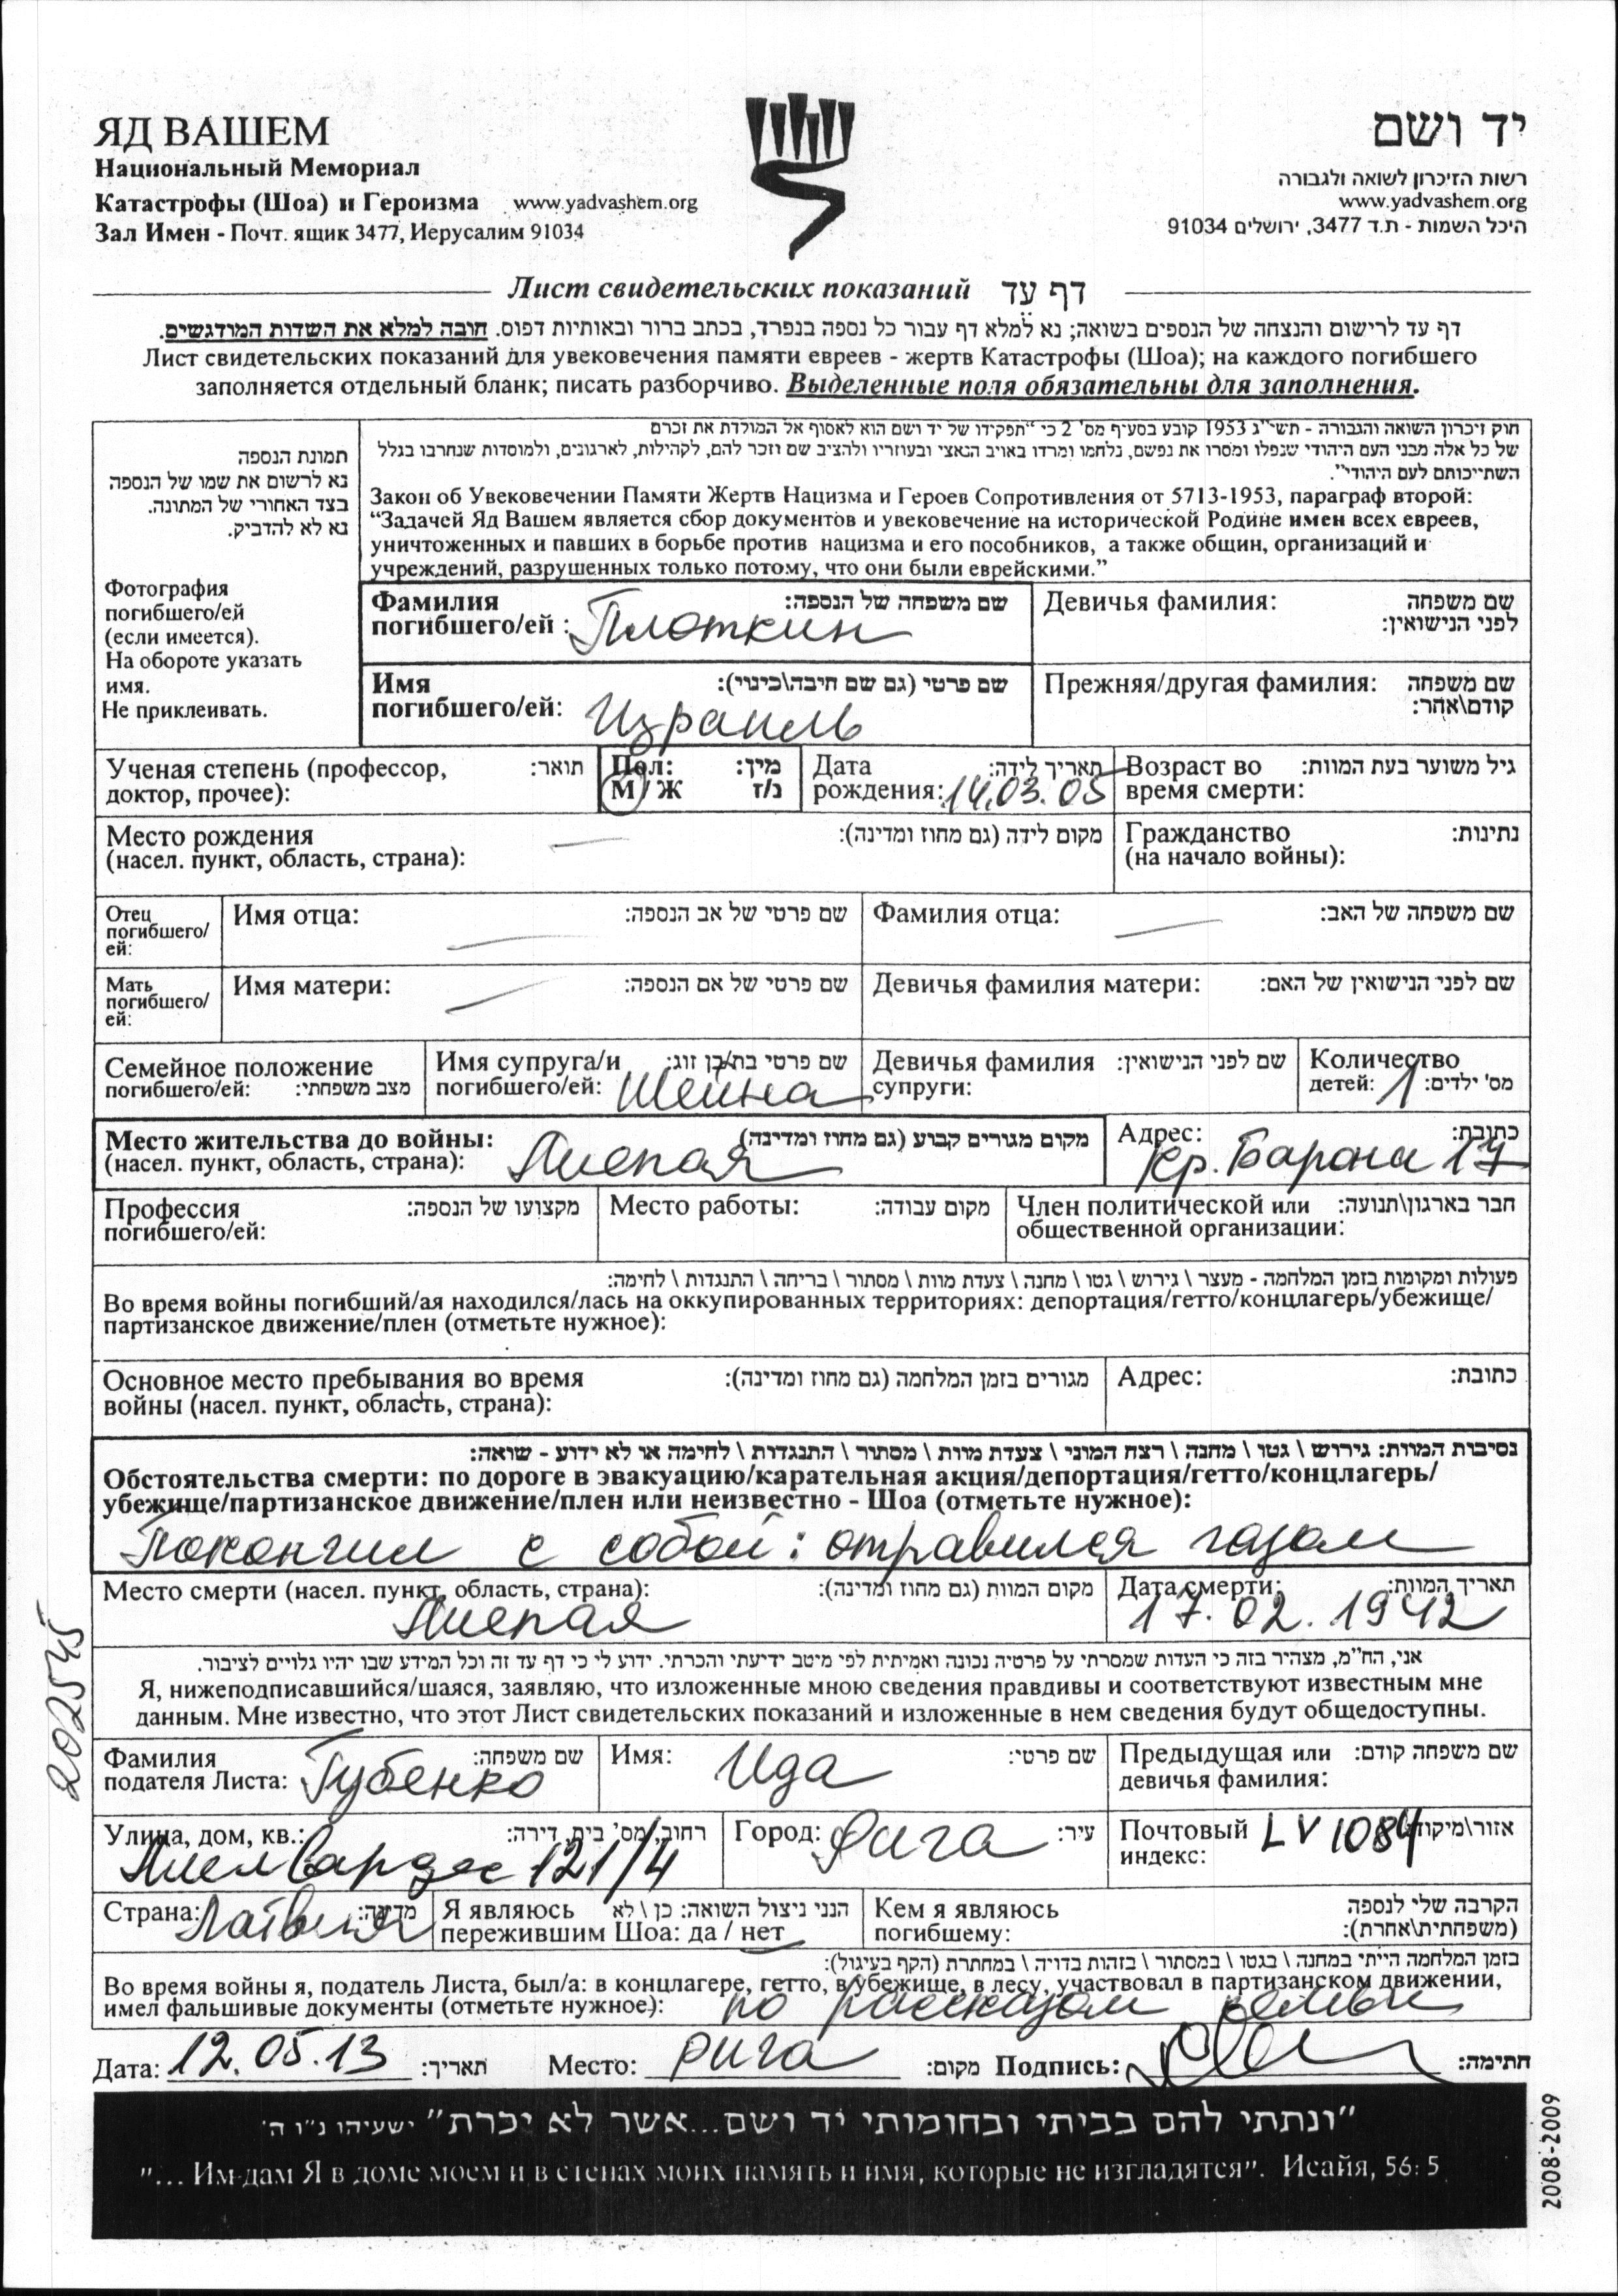 ЯД ВАШЕМ
Национальный Мемориал
Катастрофы (Шоа) и Героизма www.yadvashem.org
Зал Имен - Почт. ящик 3477, Иерусалим 91034
יד ושם
רשות הזיכרון לשואה ולגבורה
www.yadvashem.org
היכל השמות - ת.ד 3477, ירושלים 91034
Лист свидетельских показаний דף עד
דף עד לרישום והנצחה של הנספים בשואה; נא למלא דף עבור כל נספה בנפרד, בכתב ברור ובאותיות דפוס. חובה למלא את השדות המודגשים.
Лист свидетельских показаний для увековечения памяти евреев - жертв Катастрофы (Шоа); на каждого погибшего
заполняется отдельный бланк; писать разборчиво. Выделенные поля обязательны для заполнения.
תמונת הנספה
נא לרשום את שמו של הנספה
בצד האחורי של המתונה.
נא לא להדביק.
Фотография
погибшего/ей
(если имеется).
На обороте указать
имя.
Не приклеивать.
חוק זיכרון השואה והגבורה - תשי"ג 1953 קובע בסעיף מס' 2 כי "תפקידו של יד ושם הוא לאסוף אל המולדת את זכרם
של כל אלה מבני העם היהודי שנפלו ומסרו את נפשם, נלחמו ומרדו באויב הנאצי ובעוזריו ולהציב שם וזכר להם, לקהילות, לארגונים, ולמוסדות שנחרבו בגלל
השתייכותם לעם היהודי".
Закон об Увековечении Памяти Жертв Нацизма и Героев Сопротивления от 5713-1953, параграф второй:
“Задачей Яд Вашем является сбор документов и увековечение на исторической Родине имен всех евреев,
уничтоженных и павших в борьбе против нацизма и его пособников, а также общин, организаций и
учреждений, разрушенных только потому, что они были еврейскими.”
Фамилия שם משפחה של הנספה:
погибшего/ей : Плоткин
Девичья фамилия: שם משפחה
לפני הנישואין:
Имя שם פרטי (גם שם חיבה\כינוי):
погибшего/ей: Израиль
Прежняя/другая фамилия: שם משפחה
קודם\אחר:
Ученая степень (профессор, תואר:
доктор, прочее):
Пол: מין:
М / Ж ז/נ
Дата תאריך לידה:
рождения: 14.03.05
Возраст во גיל משוער בעת המוות:
время смерти:
Место рождения מקום לידה (גם מחוז ומדינה):
(насел. пункт, область, страна): —
Гражданство נתינות:
(на начало войны):
Отец
погибшего/
ей:
Имя отца: שם פרטי של אב הנספה:
—
Фамилия отца: שם משפחה של האב:
—
Мать
погибшего/
ей:
Имя матери: שם פרטי של אם הנספה:
—
Девичья фамилия матери: שם לפני הנישואין של האם:
Семейное положение
погибшего/ей: מצב משפחתי:
Имя супруга/и שם פרטי בת/בן זוג:
погибшего/ей: Шейна
Девичья фамилия שם לפני הנישואין:
супруги:
Количество
детей: 1 מס' ילדים:
Место жительства до войны: מקום מגורים קבוע (גם מחוז ומדינה)
(насел. пункт, область, страна): Лиепая
Адрес: כתובת:
Кр. Барона 17
Профессия מקצועו של הנספה:
погибшего/ей:
Место работы: מקום עבודה:
Член политической или חבר בארגון\תנועה:
общественной организации:
פעולות ומקומות בזמן המלחמה - מעצר \ גירוש \ גטו \ מחנה \ צעדת מוות \ מסתור \ בריחה \ התנגדות \ לחימה:
Во время войны погибший/ая находился/лась на оккупированных территориях: депортация/гетто/концлагерь/убежище/
партизанское движение/плен (отметьте нужное):
Основное место пребывания во время מגורים בזמן המלחמה (גם מחוז ומדינה):
войны (насел. пункт, область, страна):
Адрес: כתובת:
נסיבות המוות: גירוש \ גטו \ מחנה \ רצח המוני \ צעדת מוות \ מסתור \ התנגדות \ לחימה או לא ידוע - שואה:
Обстоятельства смерти: по дороге в эвакуацию/карательная акция/депортация/гетто/концлагерь/
убежище/партизанское движение/плен или неизвестно - Шоа (отметьте нужное):
Покончил с собой: отравился газом
Место смерти (насел. пункт, область, страна): מקום המוות (גם מחוז ומדינה):
Лиепая
Дата смерти: תאריך המוות:
17.02.1942
אני, הח"מ, מצהיר בזה כי העדות שמסרתי על פרטיה נכונה ואמיתית לפי מיטב ידיעתי והכרתי. ידוע לי כי דף עד זה וכל המידע שבו יהיו גלויים לציבור.
Я, нижеподписавшийся/шаяся, заявляю, что изложенные мною сведения правдивы и соответствуют известным мне
данным. Мне известно, что этот Лист свидетельских показаний и изложенные в нем сведения будут общедоступны.
Фамилия שם משפחה:
подателя Листа: Губенко
Имя: Ида שם פרטי:
Предыдущая или שם משפחה קודם:
девичья фамилия:
Улица, дом, кв.: רחוב, מס' בית, דירה:
Лиелвардес 121/4
Город: Рига עיר:
Почтовый LV 1084 אזור\מיקוד
индекс:
Страна: Латвия מדינה:
Я являюсь הנני ניצול השואה: כן \ לא
пережившим Шоа: да / нет
Кем я являюсь הקרבה שלי לנספה
погибшему: (משפחתית\אחרת):
בזמן המלחמה הייתי במחנה \ בגטו \ במסתור \ בזהות בדויה \ במחתרת (הקף בעיגול):
Во время войны я, податель Листа, был/а: в концлагере, гетто, в убежище, в лесу, участвовал в партизанском движении,
имел фальшивые документы (отметьте нужное): по рассказам семьи
Дата: 12.05.13 תאריך: Место: Рига מקום: Подпись: חתימה:
"ונתתי להם בביתי ובחומותי יד ושם...אשר לא יכרת" ישעיהו נ"ו ה'
"... Им дам Я в доме моем и в стенах моих память и имя, которые не изгладятся". Исайя, 56: 5
202545
2008-2009